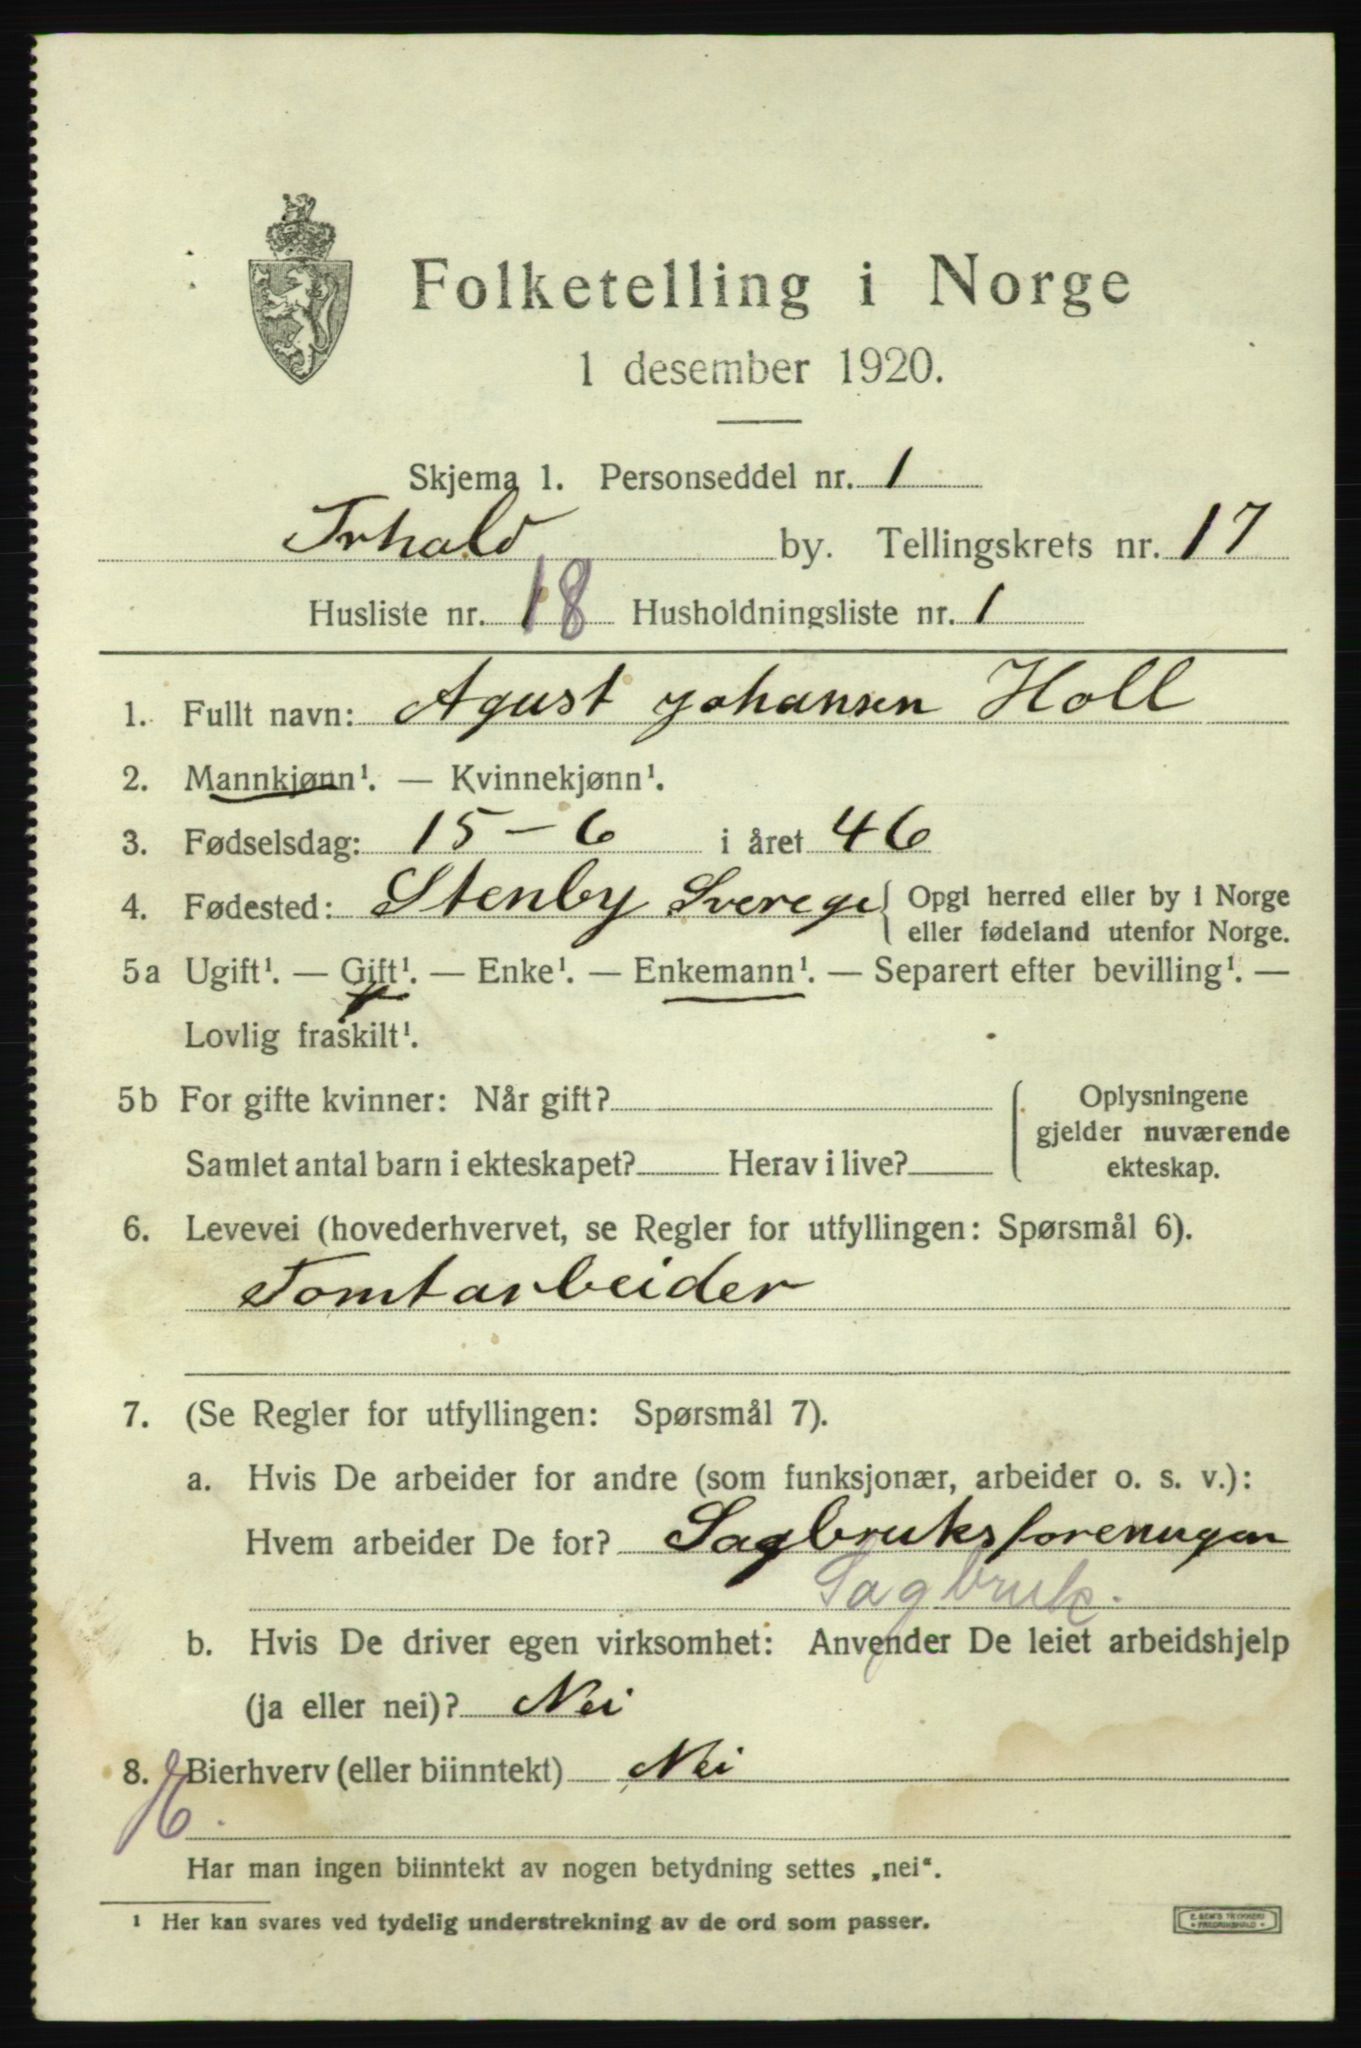 Folketelling i Norge
1 desember 1920.
Skjema 1. Personseddel nr. 1
Frhald by. Tellingskrets nr. 17
Husliste nr. 18 Husholdningsliste nr. 1
1. Fullt navn: Agust Johansen Holl
2. Mannkjønn¹. — Kvinnekjønn¹.
3. Fødselsdag: 15 - 6 i året 46
4. Fødested: Stenby Sverege { Opgi herred eller by i Norge
eller fødeland utenfor Norge.
5a Ugift¹. — Gift¹. — Enke¹. — Enkemann¹. — Separert efter bevilling¹. —
Lovlig fraskilt¹.
5b For gifte kvinner: Når gift?
Samlet antal barn i ekteskapet? Herav i live?
Oplysningene
gjelder nuværende
ekteskap.
6. Levevei (hovederhvervet, se Regler for utfyllingen: Spørsmål 6).
Tomtarbeider
7. (Se Regler for utfyllingen: Spørsmål 7).
a. Hvis De arbeider for andre (som funksjonær, arbeider o. s. v.):
Hvem arbeider De for? Sagbruksforenugen
Sagbruk.
b. Hvis De driver egen virksomhet: Anvender De leiet arbeidshjelp
(ja eller nei)? Nei
8. Bierhverv (eller biinntekt) Nei
Har man ingen biinntekt av nogen betydning settes „nei“.
¹ Her kan svares ved tydelig understrekning av de ord som passer.
E. SEM'S TRYKKERI
• FREDRIKSHALD •